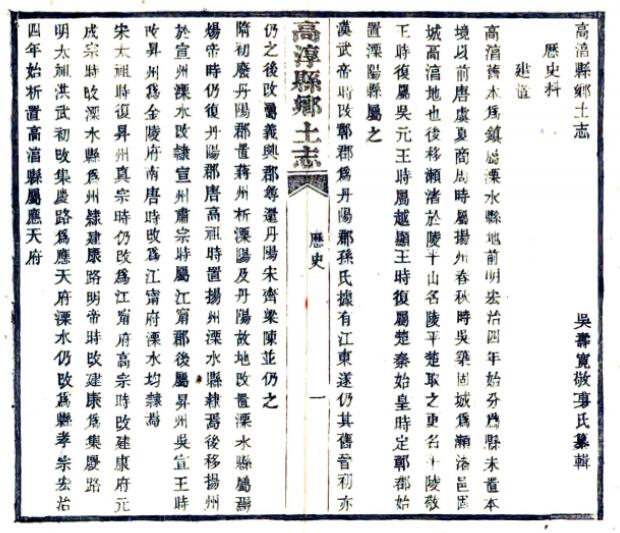 高湻縣鄉土志
吳壽寬敬事氏纂輯
歷史科
建置
高湻舊本爲鎮屬溧水縣地前明宏治四年始分爲縣未置本
境以前唐虞夏商周時屬揚州春秋時吳築固城爲瀨渚邑固
城高湻地也後移瀨渚於陵平山名陵平楚取之更名平陵敬
王時復屬吳元王時屬越顯王時復屬楚秦始皇時定鄣郡始
置溧陽縣屬之
漢武帝時改鄣郡爲丹陽郡孫氏據有江東遂仍其舊晉初亦
高淳縣鄉土志 歷史 一
仍之後改屬義興郡尋還丹陽宋齊梁陳並仍之
隋初廢丹陽郡置蔣州析溧陽及丹陽故地改置溧水縣屬焉
煬帝時仍復丹陽郡唐高祖時置揚州溧水縣隸焉後移揚州
於宣州溧水改隸宣州肅宗時屬江甯郡後屬昇州吳宣王時
改昇州爲金陵府南唐時改爲江甯府溧水均隸焉
宋太祖時復昇州真宗時仍改爲江甯府高宗時改建康府元
成宗時改溧水縣爲州隸建康路明帝時改建康爲集慶路
明太祖洪武初改集慶路爲應天府溧水仍改爲縣孝宗宏治
四年始析置高湻縣屬應天府